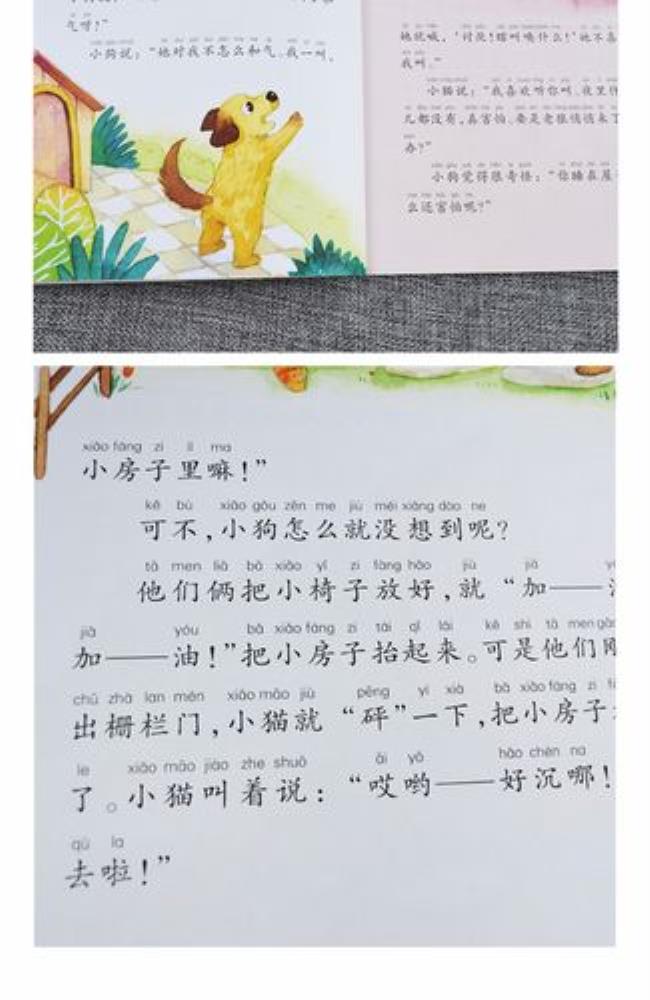 气呀！”
小狗说：“她对我不怎么和气。我一叫，
她就喊，‘讨厌！瞎叫唤什么！’她不喜
我叫。”
小猫说：“我喜欢听你叫。夜里
儿都没有，真害怕。要是老狼悄悄来了
办？”
小狗觉得很奇怪：“你睡在屋
么还害怕呢？”
xiǎo fáng zi lǐ ma
小房子里嘛！”
kě bù xiǎo gǒu zěn me jiù méi xiǎng dào ne
可不，小狗怎么就没想到呢？
tā men liǎ bǎ xiǎo yǐ zi fàng hǎo jiù jiā
他们俩把小椅子放好，就“加——
jiā yóu bǎ xiǎo fáng zi tái qǐ lái kě shì tā men gāng
加——油！”把小房子抬起来。可是他们刚
chū zhà lan mén xiǎo māo jiù pēng yí xià bǎ xiǎo fáng zi
出栅栏门，小猫就“砰”一下，把小房子
le xiǎo māo jiào zhe shuō āi yō hǎo chén na
了。小猫叫着说：“哎哟——好沉哪！
qù la
去啦！”